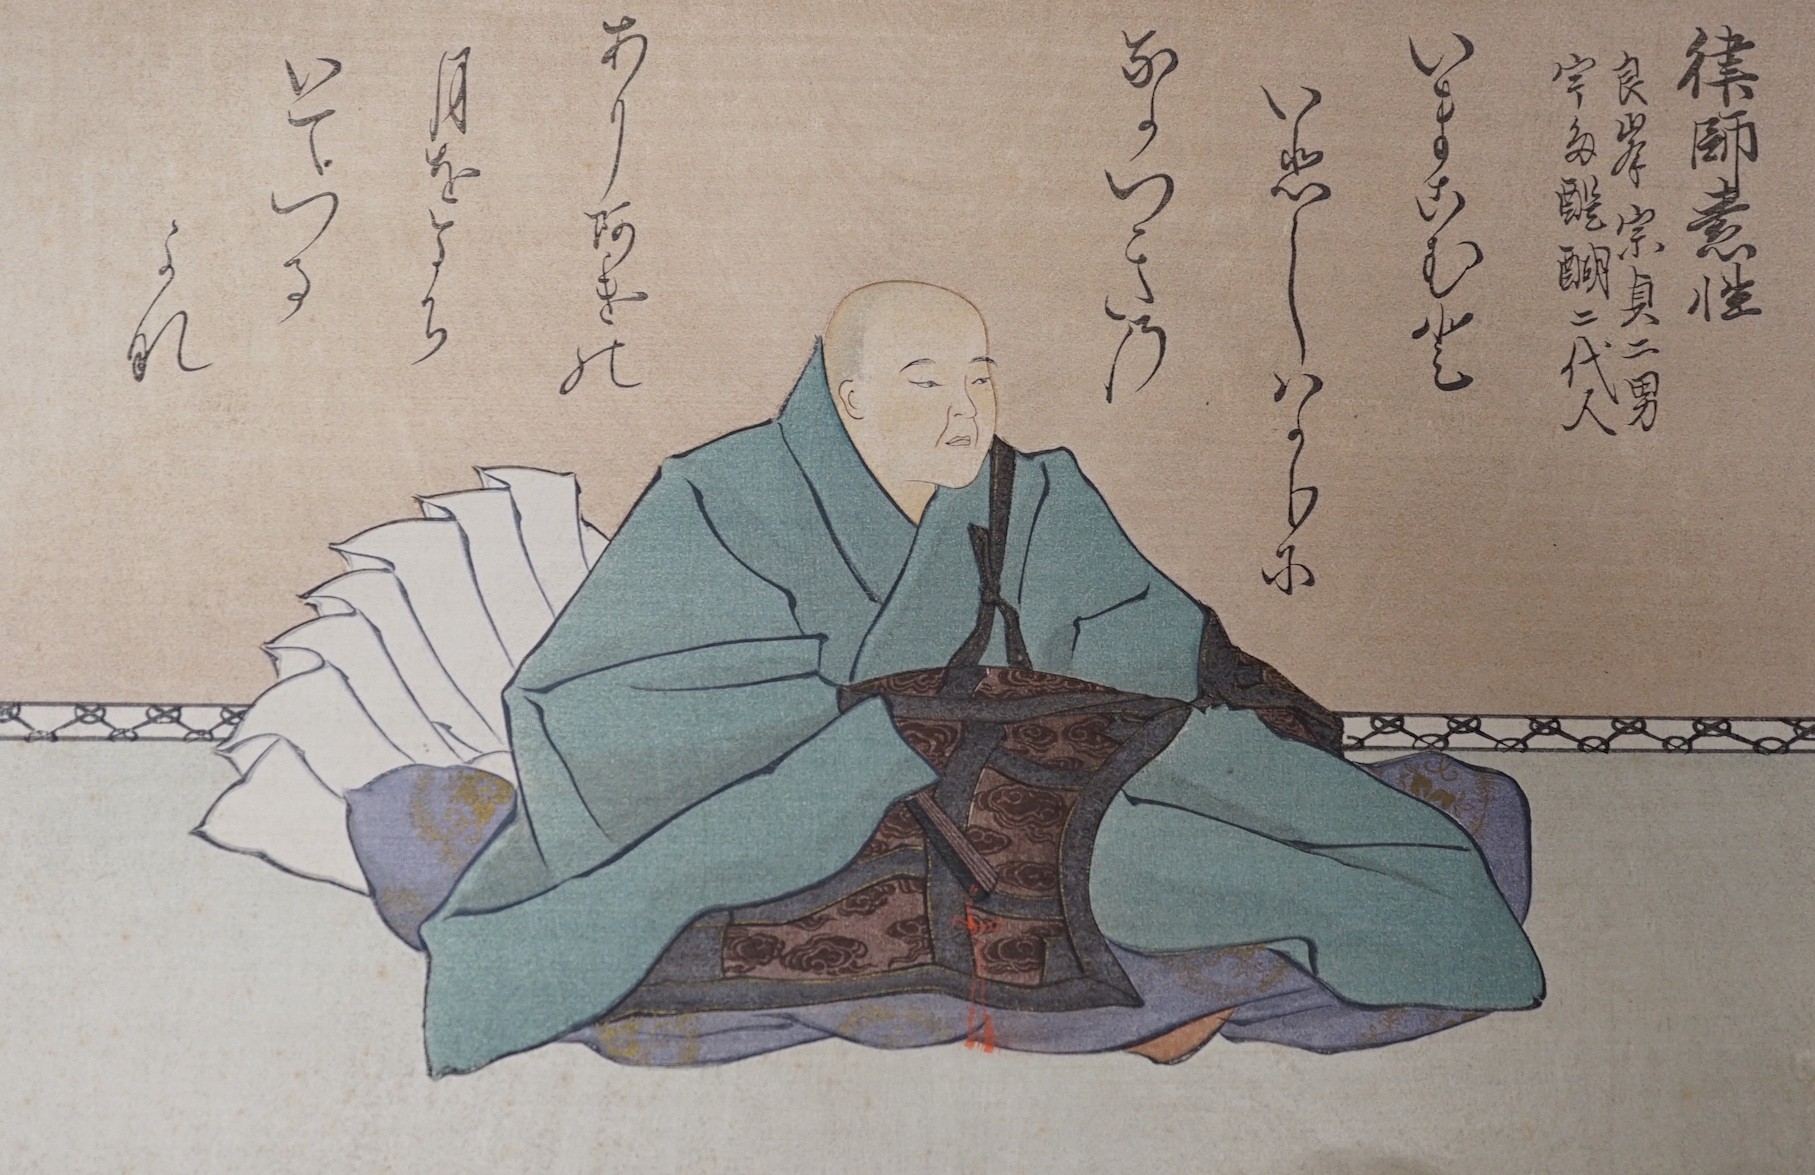 律師素性
良峯宗貞二男
宇多醍醐二代人
いまこむと
いひしハかりに
なかつきの
ありあけの
月をまち
いてつる
かな